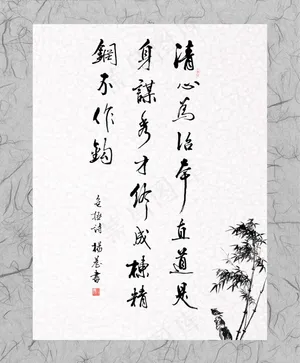 清心為治本直道是
身謀秀才終成棟精
鋼不作鈎
包拯詩 楊益書